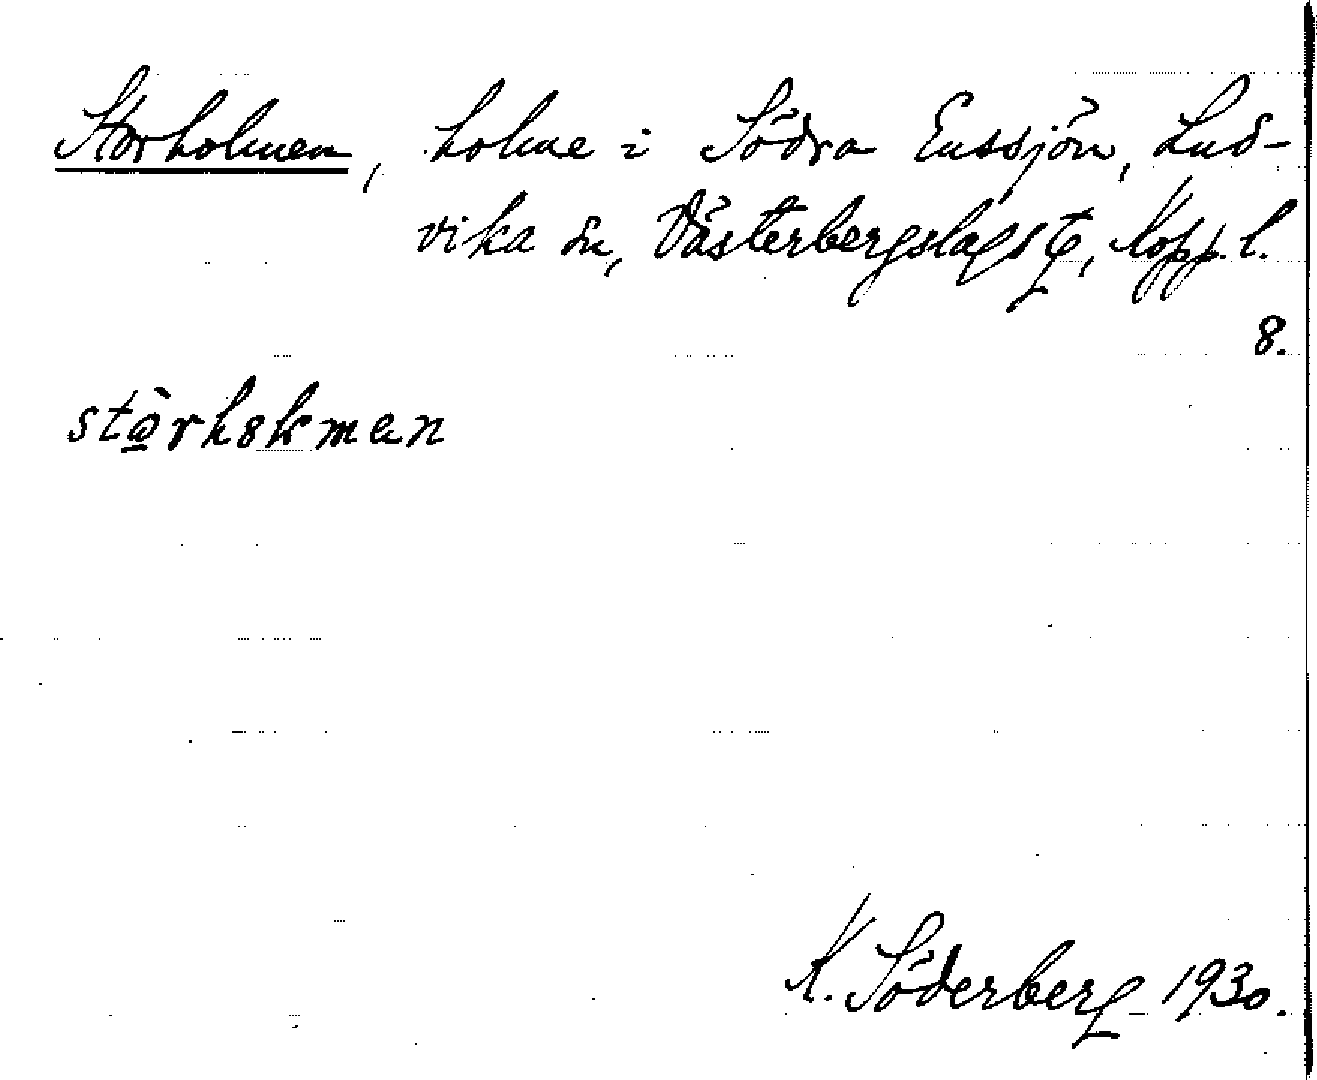 Storholmen, holme i Södra Enssjön, Lud-
vika sn, Västerbergslags tg, Kopp. l.
8.
K. Söderberg 1930.